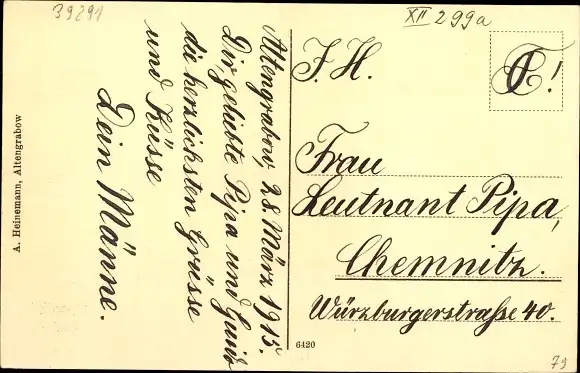 39291
XII 299a
Altengrabow, 28. März 1915.
Dir, geliebte Pipa und
die herzlichsten Grüsse
und Küsse
Dein Männe.
F. H.
Frau
Leutnant Pipa,
Chemnitz.
Würzburgerstraße 40.
A. Heinemann, Altengrabow
6420
79